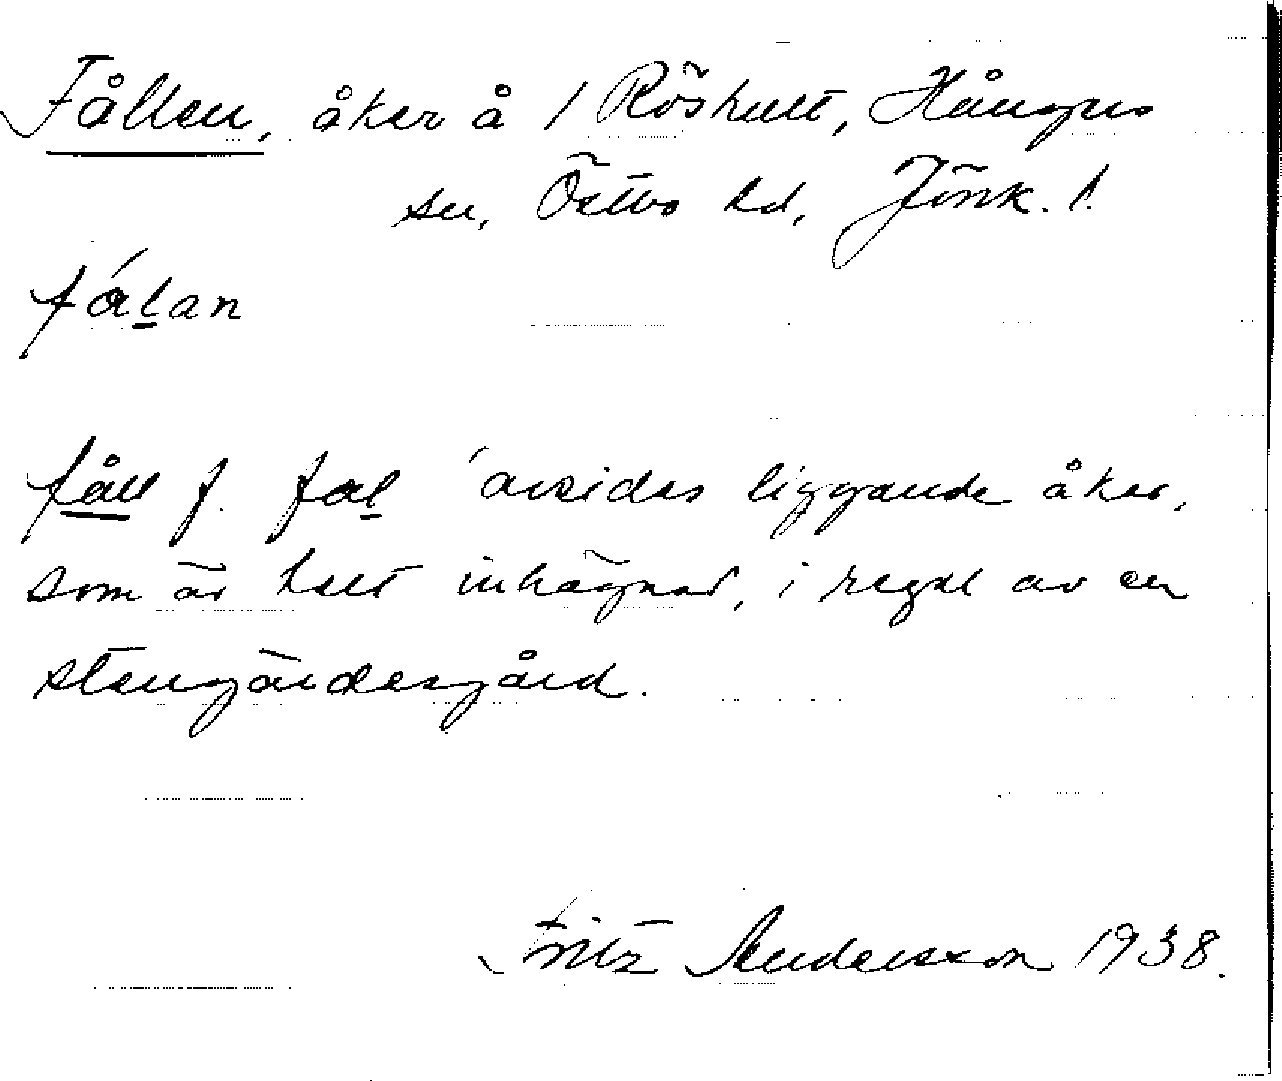 Fållen, åker å 1 Röshult, Hångers
sn, Östbo hd, Jönk. l.
fá̊lan
fåll f. fål 'avsides liggande åker,
som är helt inhägnad, i regel av en
stengärdesgård.
Fritz Andersson 1938.